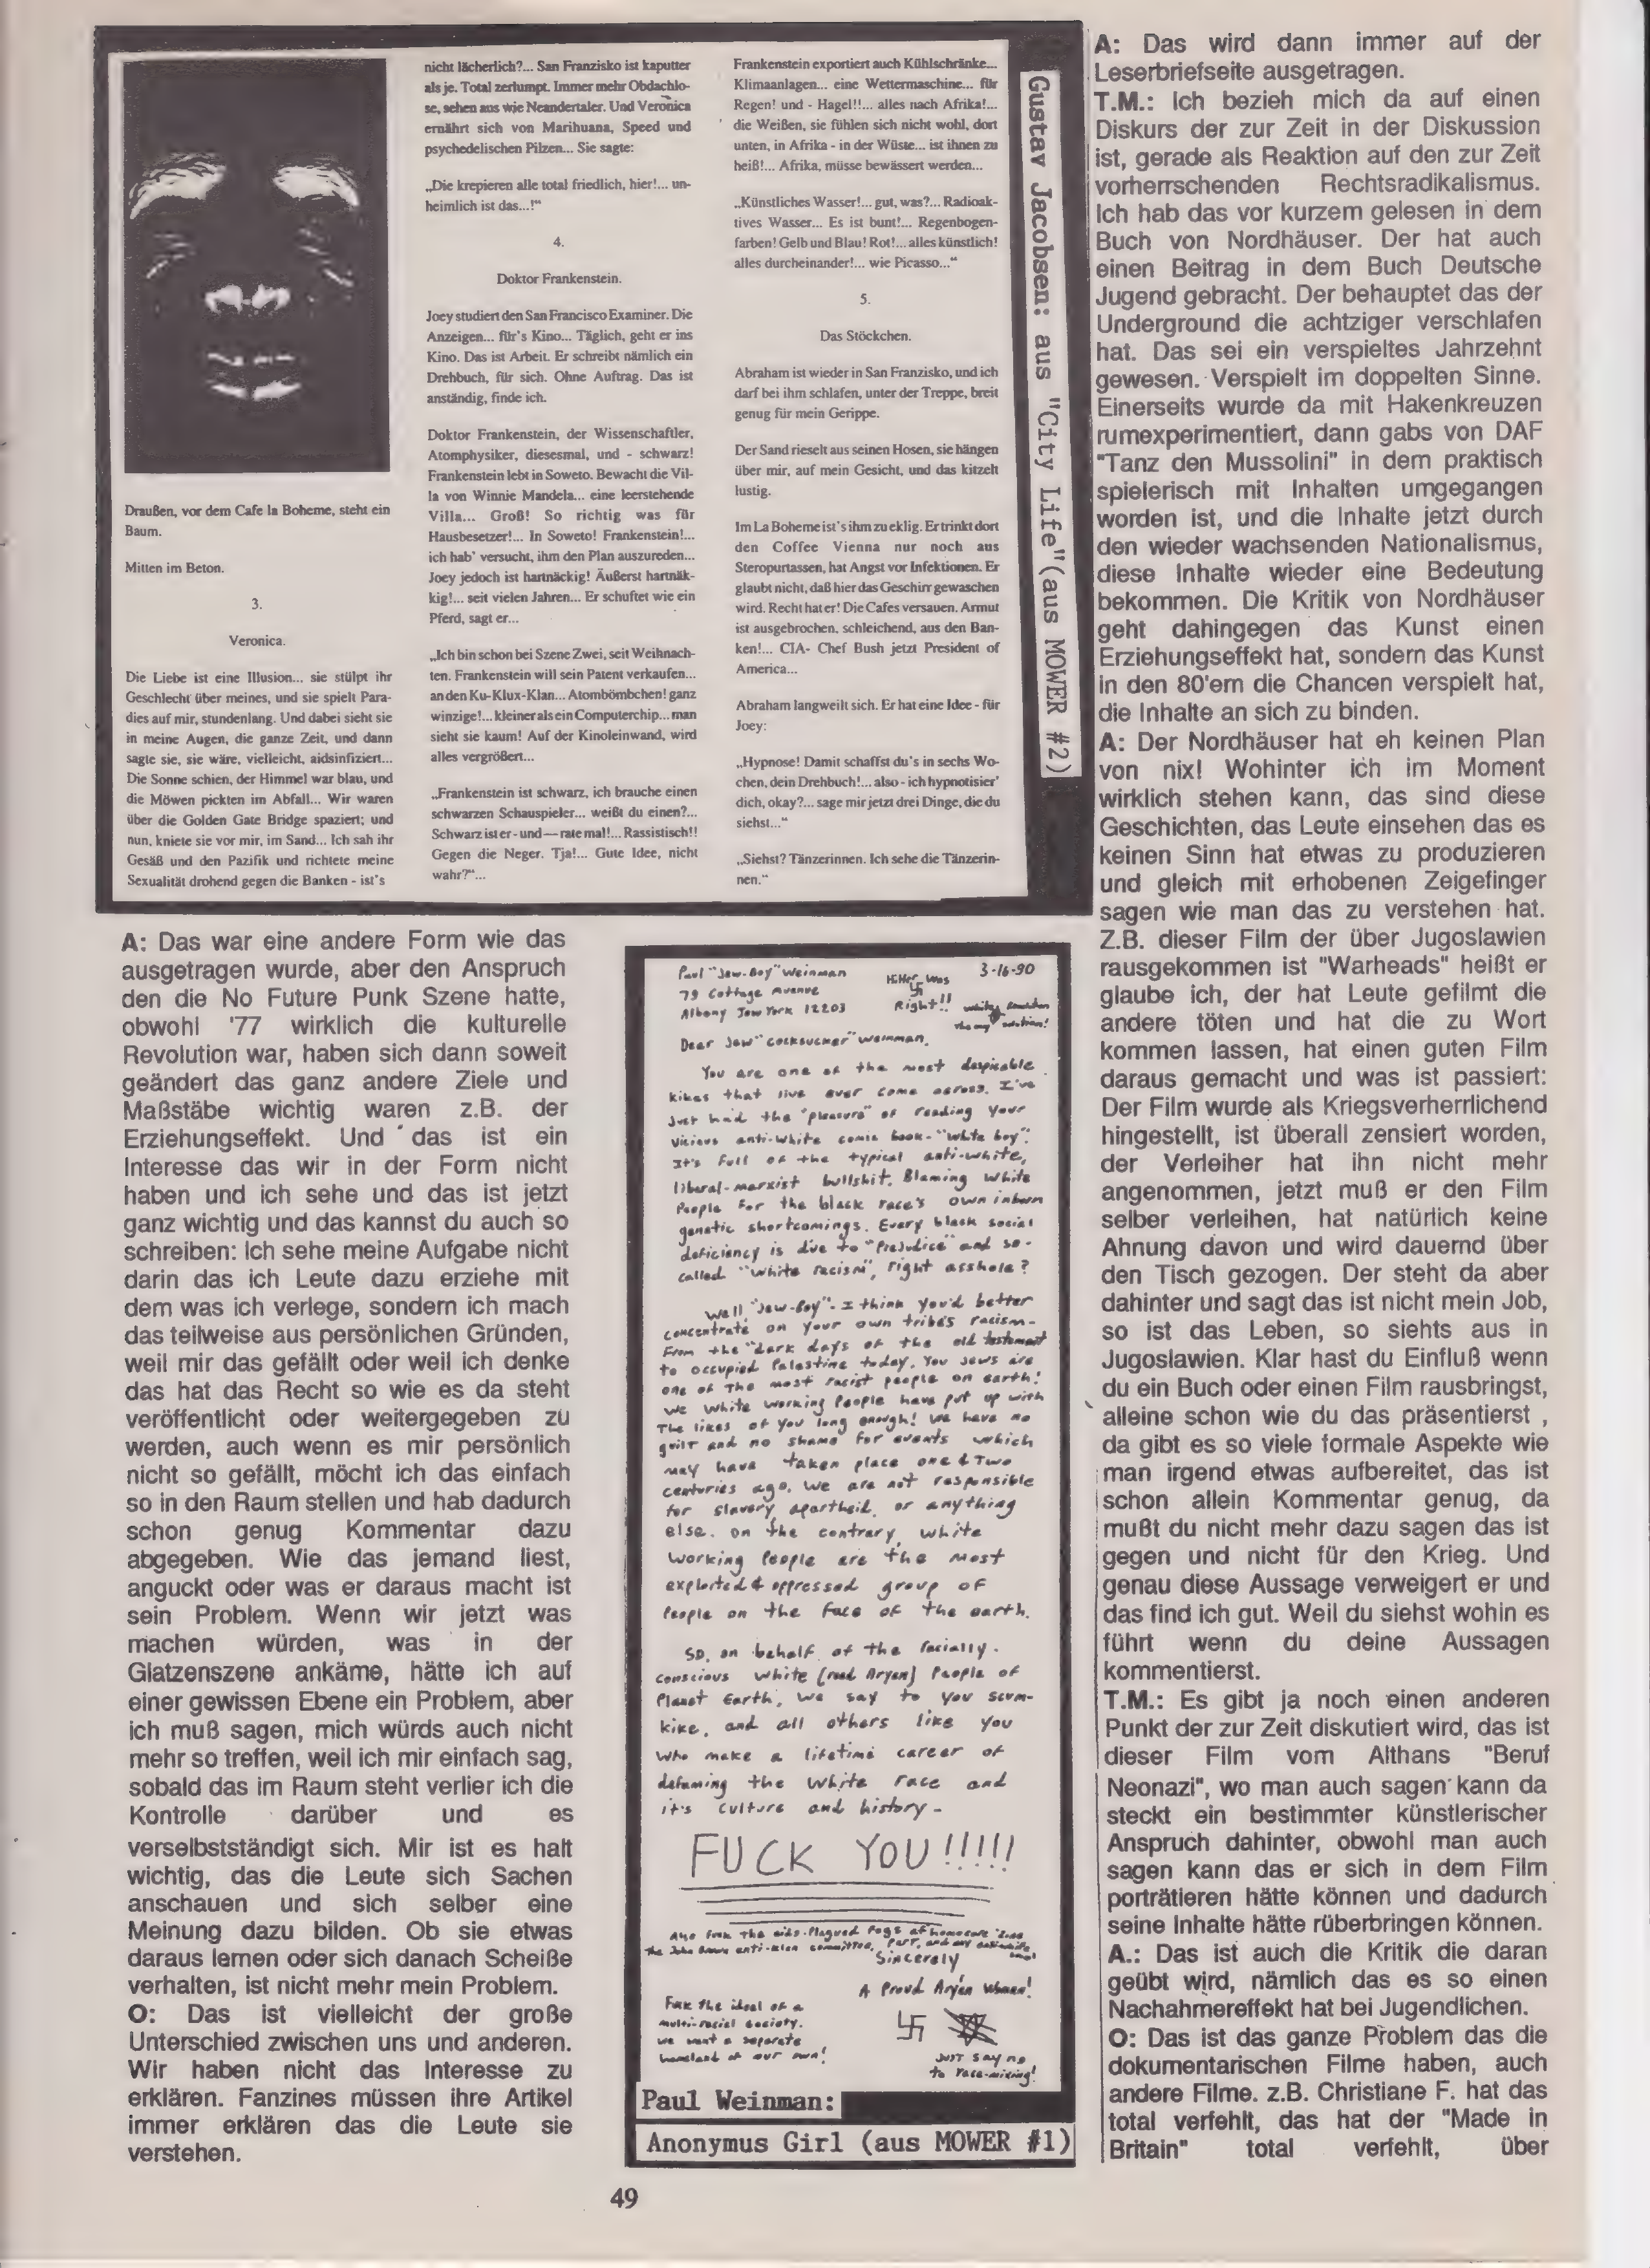 Draußen, vor dem Cafe la Boheme, steht ein
Baum.
Mitten im Beton.
3.
Veronica.
Die Liebe ist eine Illusion... sie stülpt ihr
Geschlecht über meines, und sie spielt Para-
dies auf mir, stundenlang. Und dabei sieht sie
in meine Augen, die ganze Zeit, und dann
sagte sie, sie wäre, vielleicht, aidsinfiziert...
Die Sonne schien, der Himmel war blau, und
die Möwen pickten im Abfall... Wir waren
über die Golden Gate Bridge spaziert; und
nun, kniete sie vor mir, im Sand... Ich sah ihr
Gesäß und den Pazifik und richtete meine
Sexualität drohend gegen die Banken - ist's
nicht lächerlich?... San Franzisko ist kaputter
als je. Total zerlumpt. Immer mehr Obdachlo-
se, sehen aus wie Neandertaler. Und Veronica
ernährt sich von Marihuana, Speed und
psychedelischen Pilzen... Sie sagte:
„Die krepieren alle total friedlich, hier!... un-
heimlich ist das...!“
4.
Doktor Frankenstein.
Joey studiert den San Francisco Examiner. Die
Anzeigen... für's Kino... Täglich, geht er ins
Kino. Das ist Arbeit. Er schreibt nämlich ein
Drehbuch, für sich. Ohne Auftrag. Das ist
anständig, finde ich.
Doktor Frankenstein, der Wissenschaftler,
Atomphysiker, diesesmal, und - schwarz!
Frankenstein lebt in Soweto. Bewacht die Vil-
la von Winnie Mandela... eine leerstehende
Villa... Groß! So richtig was für
Hausbesetzer!... In Soweto! Frankenstein!...
ich hab' versucht, ihm den Plan auszureden...
Joey jedoch ist hartnäckig! Äußerst hartnäk-
kig!... seit vielen Jahren... Er schuftet wie ein
Pferd, sagt er...
„Ich bin schon bei Szene Zwei, seit Weihnach-
ten. Frankenstein will sein Patent verkaufen...
an den Ku-Klux-Klan... Atombömbchen! ganz
winzige!... kleiner als ein Computerchip... man
sieht sie kaum! Auf der Kinoleinwand, wird
alles vergrößert...
„Frankenstein ist schwarz, ich brauche einen
schwarzen Schauspieler... weißt du einen?...
Schwarz ist er - und — rate mal!... Rassistisch!!
Gegen die Neger. Tja!... Gute Idee, nicht
wahr?“...
Frankenstein exportiert auch Kühlschränke...
Klimaanlagen... eine Wettermaschine... für
Regen! und - Hagel!!... alles nach Afrika!...
die Weißen, sie fühlen sich nicht wohl, dort
unten, in Afrika - in der Wüste... ist ihnen zu
heiß!... Afrika, müsse bewässert werden...
„Künstliches Wasser!... gut, was?... Radioak-
tives Wasser... Es ist bunt!... Regenbogen-
farben! Gelb und Blau! Rot!... alles künstlich!
alles durcheinander!... wie Picasso...“
5.
Das Stöckchen.
Abraham ist wieder in San Franzisko, und ich
darf bei ihm schlafen, unter der Treppe, breit
genug für mein Gerippe.
Der Sand rieselt aus seinen Hosen, sie hängen
über mir, auf mein Gesicht, und das kitzelt
lustig.
Im La Boheme ist's ihm zu eklig. Er trinkt dort
den Coffee Vienna nur noch aus
Steropurtassen, hat Angst vor Infektionen. Er
glaubt nicht, daß hier das Geschirr gewaschen
wird. Recht hat er! Die Cafes versauen. Armut
ist ausgebrochen, schleichend, aus den Ban-
ken!... CIA- Chef Bush jetzt President of
America...
Abraham langweilt sich. Er hat eine Idee - für
Joey:
„Hypnose! Damit schaffst du's in sechs Wo-
chen, dein Drehbuch!... also - ich hypnotisier'
dich, okay?... sage mir jetzt drei Dinge, die du
siehst...“
„Siehst? Tänzerinnen. Ich sehe die Tänzerin-
nen.“
Gustav Jacobsen: aus "City Life"(aus MOWER #2)
A: Das war eine andere Form wie das
ausgetragen wurde, aber den Anspruch
den die No Future Punk Szene hatte,
obwohl '77 wirklich die kulturelle
Revolution war, haben sich dann soweit
geändert das ganz andere Ziele und
Maßstäbe wichtig waren z.B. der
Erziehungseffekt. Und das ist ein
Interesse das wir in der Form nicht
haben und ich sehe und das ist jetzt
ganz wichtig und das kannst du auch so
schreiben: Ich sehe meine Aufgabe nicht
darin das ich Leute dazu erziehe mit
dem was ich verlege, sondern ich mach
das teilweise aus persönlichen Gründen,
weil mir das gefällt oder weil ich denke
das hat das Recht so wie es da steht
veröffentlicht oder weitergegeben zu
werden, auch wenn es mir persönlich
nicht so gefällt, möcht ich das einfach
so in den Raum stellen und hab dadurch
schon genug Kommentar dazu
abgegeben. Wie das jemand liest,
anguckt oder was er daraus macht ist
sein Problem. Wenn wir jetzt was
machen würden, was in der
Glatzenszene ankäme, hätte ich auf
einer gewissen Ebene ein Problem, aber
ich muß sagen, mich würds auch nicht
mehr so treffen, weil ich mir einfach sag,
sobald das im Raum steht verlier ich die
Kontrolle darüber und es
verselbstständigt sich. Mir ist es halt
wichtig, das die Leute sich Sachen
anschauen und sich selber eine
Meinung dazu bilden. Ob sie etwas
daraus lernen oder sich danach Scheiße
verhalten, ist nicht mehr mein Problem.
O: Das ist vielleicht der große
Unterschied zwischen uns und anderen.
Wir haben nicht das Interesse zu
erklären. Fanzines müssen ihre Artikel
immer erklären das die Leute sie
verstehen.
Paul "Jew-Boy" Weinman
79 Cottage Avenue
Albany Jew York 12203
3-16-90
Hitler Was
Right!!
Dear Jew "Cocksucker" Weinman,
You are one of the most despicable
kikes that I've ever come across. I've
just had the "pleasure" of reading your
vicious anti-white comic book - "White boy".
It's full of the typical anti-white,
liberal-marxist bullshit. Blaming White
People for the black race's own inborn
genetic shortcomings. Every black social
deficiency is due to "Prejudice" and so-
called "White racism", right asshole?
Well "Jew-Boy" - I think you'd better
concentrate on your own tribe's racism-
From the "dark days of the old testament
to occupied Palestine today. You Jews are
one of the most racist people on earth!
We White working People have put up with
the likes of you long enough! We have no
guilt and no shame for events which
may have taken place one & two
centuries ago. We are not responsible
for slavery, apartheid, or anything
else. On the contrary, White
Working People are the most
exploited & oppressed group of
People on the face of the earth.
So, on behalf of the racially-
conscious White (read Aryan) People of
Planet Earth, we say to you scum-
kike, and all others like you
who make a lifetime career of
defaming the White race and
it's culture and history -
FUCK YOU!!!!!
Sincerely
A Proud Aryan Woman!
Fuck the ideal of a
multi-racial society.
we want a separate
homeland of our own!
JUST SAY NO
to race-mixing!
Paul Weinman:
Anonymus Girl (aus MOWER #1)
A: Das wird dann immer auf der
Leserbriefseite ausgetragen.
T.M.: Ich bezieh mich da auf einen
Diskurs der zur Zeit in der Diskussion
ist, gerade als Reaktion auf den zur Zeit
vorherrschenden Rechtsradikalismus.
Ich hab das vor kurzem gelesen in dem
Buch von Nordhäuser. Der hat auch
einen Beitrag in dem Buch Deutsche
Jugend gebracht. Der behauptet das der
Underground die achtziger verschlafen
hat. Das sei ein verspieltes Jahrzehnt
gewesen. Verspielt im doppelten Sinne.
Einerseits wurde da mit Hakenkreuzen
rumexperimentiert, dann gabs von DAF
"Tanz den Mussolini" in dem praktisch
spielerisch mit Inhalten umgegangen
worden ist, und die Inhalte jetzt durch
den wieder wachsenden Nationalismus,
diese Inhalte wieder eine Bedeutung
bekommen. Die Kritik von Nordhäuser
geht dahingegen das Kunst einen
Erziehungseffekt hat, sondern das Kunst
in den 80'em die Chancen verspielt hat,
die Inhalte an sich zu binden.
A: Der Nordhäuser hat eh keinen Plan
von nix! Wohinter ich im Moment
wirklich stehen kann, das sind diese
Geschichten, das Leute einsehen das es
keinen Sinn hat etwas zu produzieren
und gleich mit erhobenen Zeigefinger
sagen wie man das zu verstehen hat.
Z.B. dieser Film der über Jugoslawien
rausgekommen ist "Warheads" heißt er
glaube ich, der hat Leute gefilmt die
andere töten und hat die zu Wort
kommen lassen, hat einen guten Film
daraus gemacht und was ist passiert:
Der Film wurde als Kriegsverherrlichend
hingestellt, ist überall zensiert worden,
der Verleiher hat ihn nicht mehr
angenommen, jetzt muß er den Film
selber verleihen, hat natürlich keine
Ahnung davon und wird dauernd über
den Tisch gezogen. Der steht da aber
dahinter und sagt das ist nicht mein Job,
so ist das Leben, so siehts aus in
Jugoslawien. Klar hast du Einfluß wenn
du ein Buch oder einen Film rausbringst,
alleine schon wie du das präsentierst ,
da gibt es so viele formale Aspekte wie
man irgend etwas aufbereitet, das ist
schon allein Kommentar genug, da
mußt du nicht mehr dazu sagen das ist
gegen und nicht für den Krieg. Und
genau diese Aussage verweigert er und
das find ich gut. Weil du siehst wohin es
führt wenn du deine Aussagen
kommentierst.
T.M.: Es gibt ja noch einen anderen
Punkt der zur Zeit diskutiert wird, das ist
dieser Film vom Althans "Beruf
Neonazi", wo man auch sagen kann da
steckt ein bestimmter künstlerischer
Anspruch dahinter, obwohl man auch
sagen kann das er sich in dem Film
porträtieren hätte können und dadurch
seine Inhalte hätte rüberbringen können.
A.: Das ist auch die Kritik die daran
geübt wird, nämlich das es so einen
Nachahmereffekt hat bei Jugendlichen.
O: Das ist das ganze Problem das die
dokumentarischen Filme haben, auch
andere Filme. z.B. Christiane F. hat das
total verfehlt, das hat der "Made in
Britain" total verfehlt, über
49